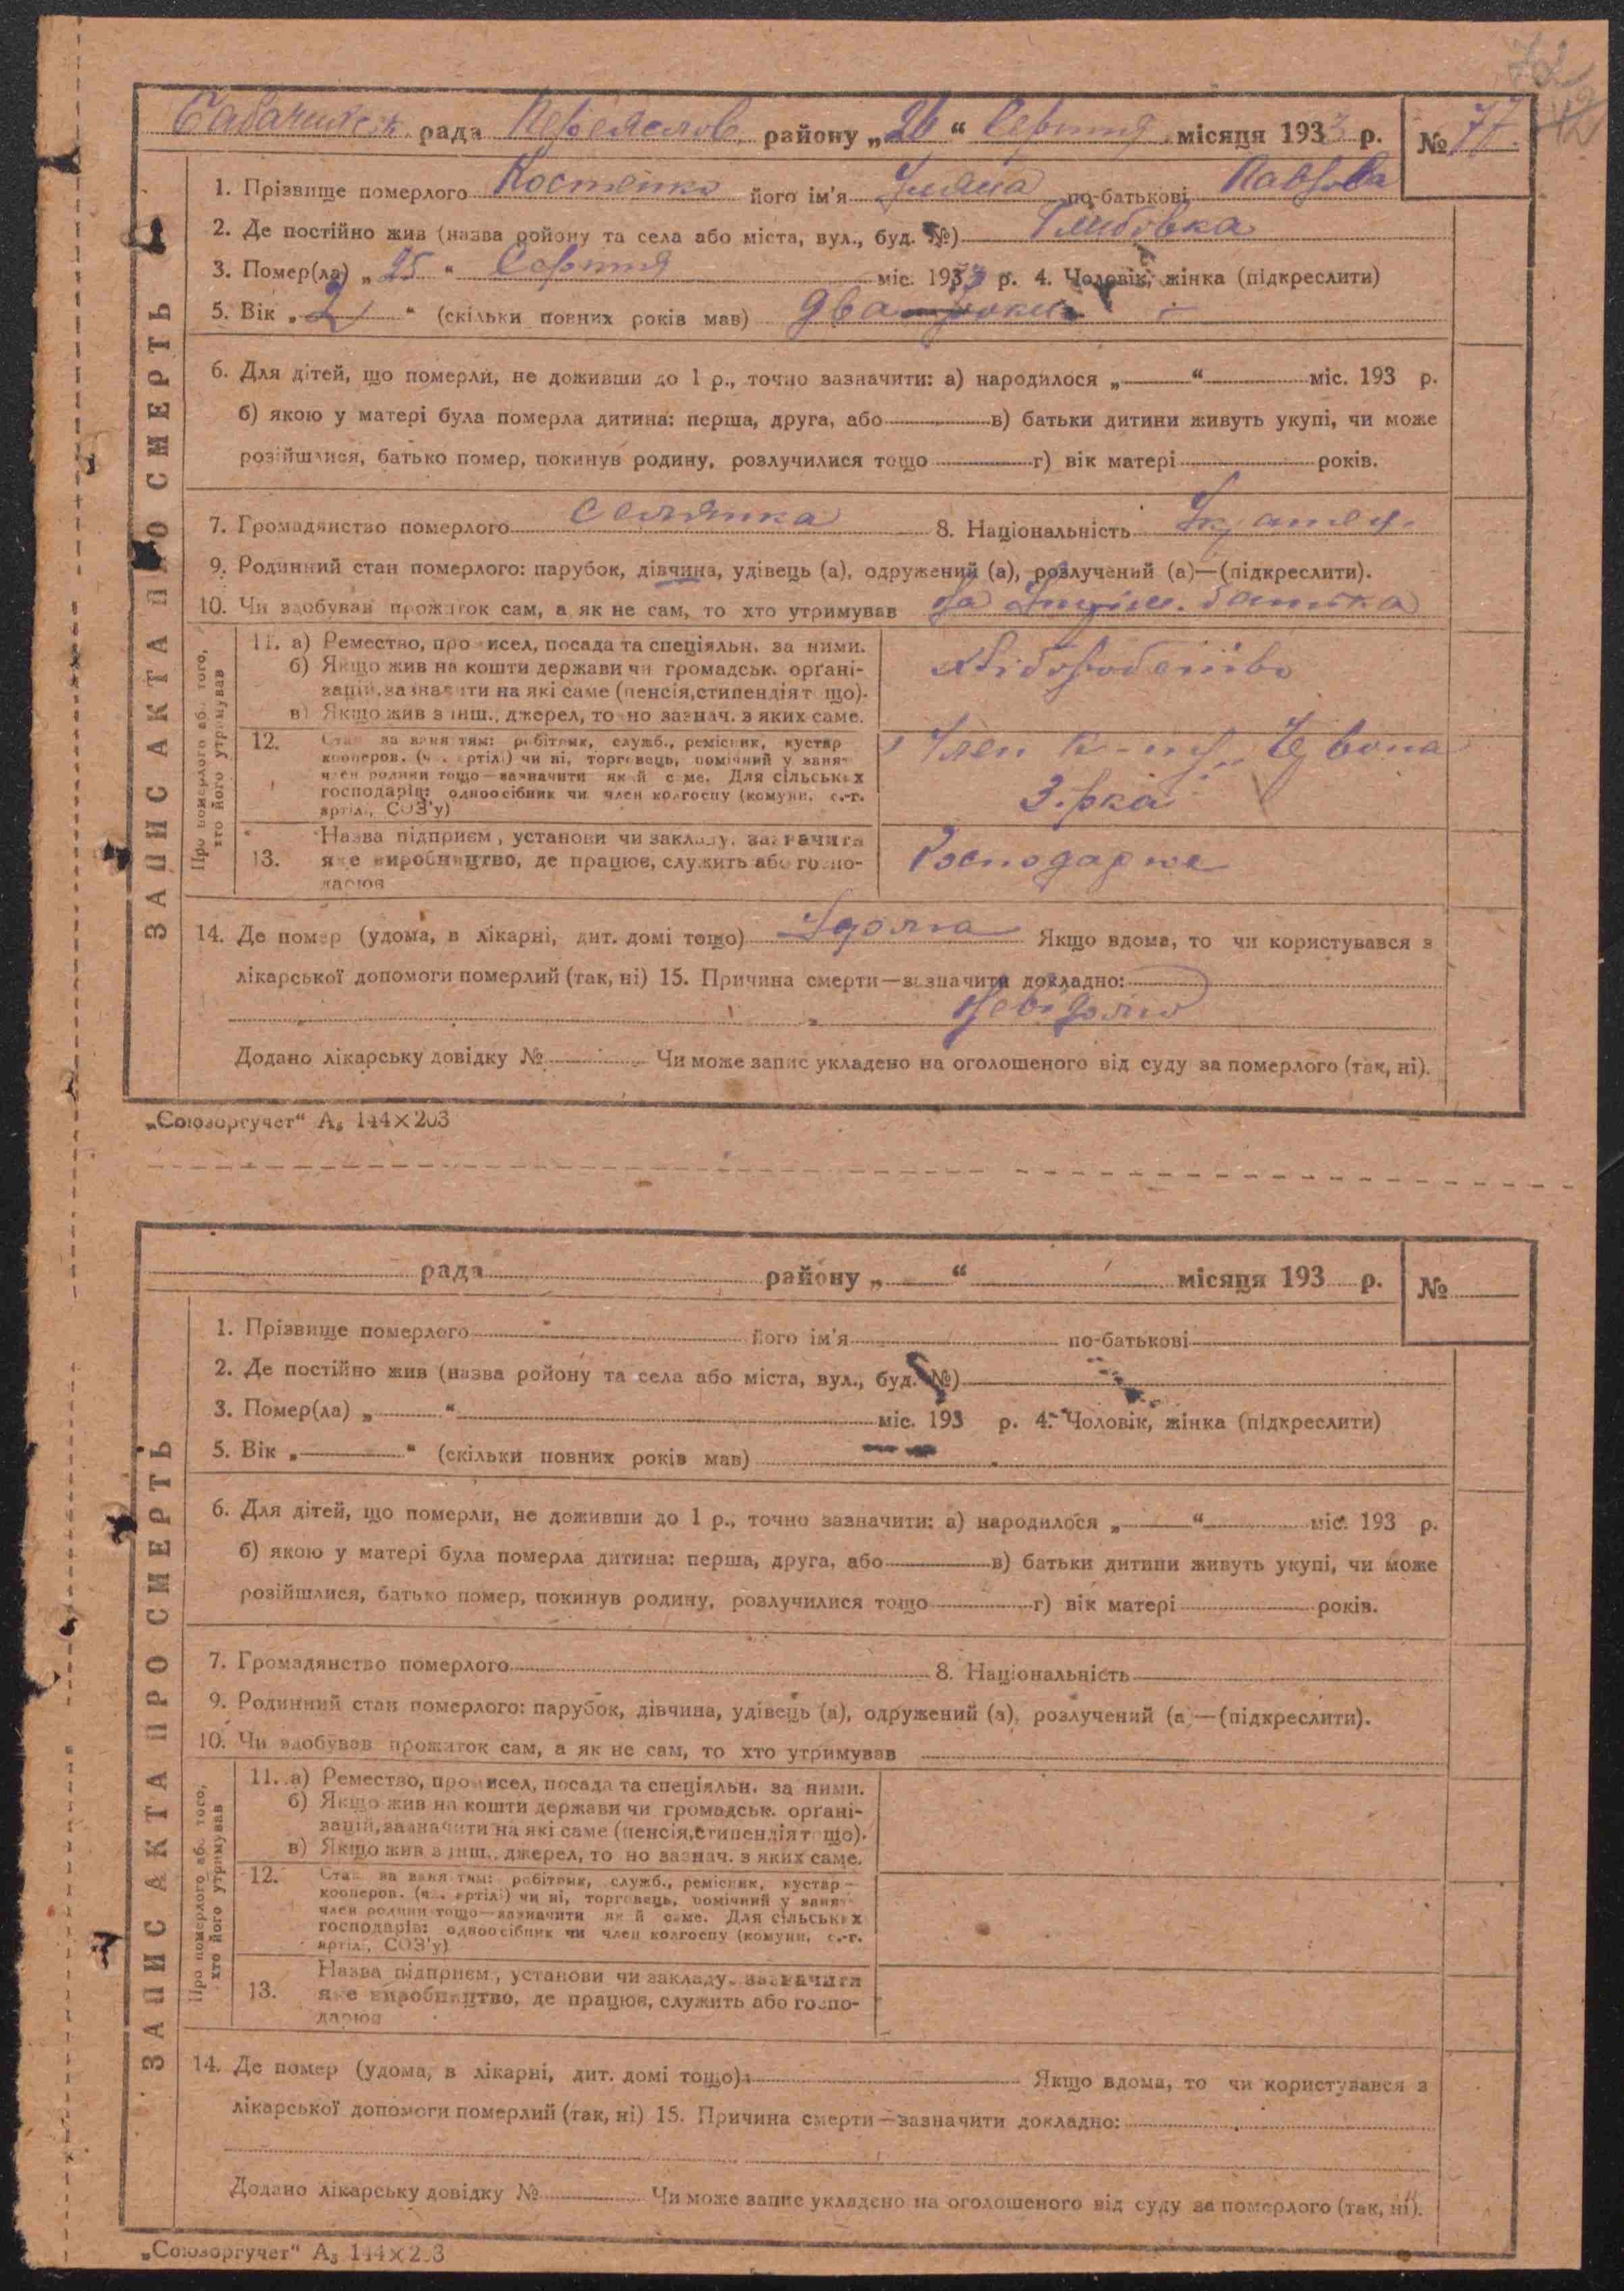 72
42
рада Переяслов. району „26“ Серпня місяця 1933 р. № 77.
1. Прізвище померлого Костенко його ім'я Уляна по-батькові Павлова
2. Де постійно жив (назва ройону та села або міста, вул., буд. №) Глибовка
3. Помер(ла) „25“ Серпня міс. 1933 р. 4. Чоловік, жінка (підкреслити)
5. Вік „2“ (скільки повних років мав) два роки
6. Для дітей, що померли, не доживши до 1 р., точно зазначити: а) народилося „ “ міс. 193 р.
б) якою у матері була померла дитина: перша, друга, або в) батьки дитини живуть укупі, чи може
розійшлися, батько помер, покинув родину, розлучилися тощо г) вік матері років.
7. Громадянство померлого селянка 8. Національність
9. Родинний стан померлого: парубок, дівчина, удівець (а), одружений (а), розлучений (а)—(підкреслити).
10. Чи здобував прожиток сам, а як не сам, то хто утримував На Утрим. батька
ЗАПИС АКТА ПРО СМЕРТЬ
Про померлого або того,
хто його утримував
11. а) Ремество, промисел, посада та спеціяльн. за ними.
б) Якщо жив на кошти держави чи громадськ. орґані-
зацій, зазначити на які саме (пенсія, стипендія т що).
в) Якщо жив з інш., джерел, то но зазнач. з яких саме.
Хліборобство
12. Стан за заняттям: робітник, служб., ремісник, кустар
кооперов. (ч. артілі) чи ні, торговець, помічний у занят
член родини тощо—зазначити який саме. Для сільських
господарів: одноосібник чи член колгоспу (комуни, с.-г.
артілі, СОЗ'у)
Член к-пу „Червона
Зірка
13. Назва підприєм, установи чи закладу, зазначити
яке виробництво, де працює, служить або госпо-
дарює
Господарює
14. Де помер (удома, в лікарні, дит. домі тощо) Удома Якщо вдома, то чи користувався з
лікарської допомоги померлий (так, ні) 15. Причина смерти—зазначити докладно:
Невідомо
Додано лікарську довідку № Чи може запис укладено на оголошеного від суду за померлого (так, ні).
„Союзоргучет“ А₅ 144×203
рада району „ “ місяця 193 р. №
1. Прізвище померлого його ім'я по-батькові
2. Де постійно жив (назва ройону та села або міста, вул., буд. №)
3. Помер(ла) „ “ міс. 193 р. 4. Чоловік, жінка (підкреслити)
5. Вік „ “ (скільки повних років мав)
6. Для дітей, що померли, не доживши до 1 р., точно зазначити: а) народилося „ “ міс. 193 р.
б) якою у матері була померла дитина: перша, друга, або в) батьки дитини живуть укупі, чи може
розійшлися, батько помер, покинув родину, розлучилися тощо г) вік матері років.
7. Громадянство померлого 8. Національність
9. Родинний стан померлого: парубок, дівчина, удівець (а), одружений (а), розлучений (а —(підкреслити).
10. Чи здобував прожиток сам, а як не сам, то хто утримував
ЗАПИС АКТА ПРО СМЕРТЬ
Про померлого або того,
хто його утримував
11. а) Ремество, промисел, посада та спеціяльн. за ними.
б) Якщо жив на кошти держави чи громадськ. орґані-
зацій, зазначити на які саме (пенсія, стипендія т що).
в) Якщо жив з інш., джерел, то но зазнач. з яких саме.
12. Стан за заняттям: робітник, служб., ремісник, кустар—
кооперов. (ч. артілі) чи ні, торговець, помічний у занят
член родини тощо—зазначити який саме. Для сільських
господарів: одноосібник чи член колгоспу (комуни, с.-г.
артілі, СОЗ'у)
13. Назва підприєм, установи чи закладу, зазначити
яке виробництво, де працює, служить або госпо-
дарює
14. Де помер (удома, в лікарні, дит. домі тощо) Якщо вдома, то чи користувався з
лікарської допомоги померлий (так, ні) 15. Причина смерти—зазначити докладно:
Додано лікарську довідку № Чи може запис укладено на оголошеного від суду за померлого (так, ні).
„Союзоргучет“ А₅ 144×203